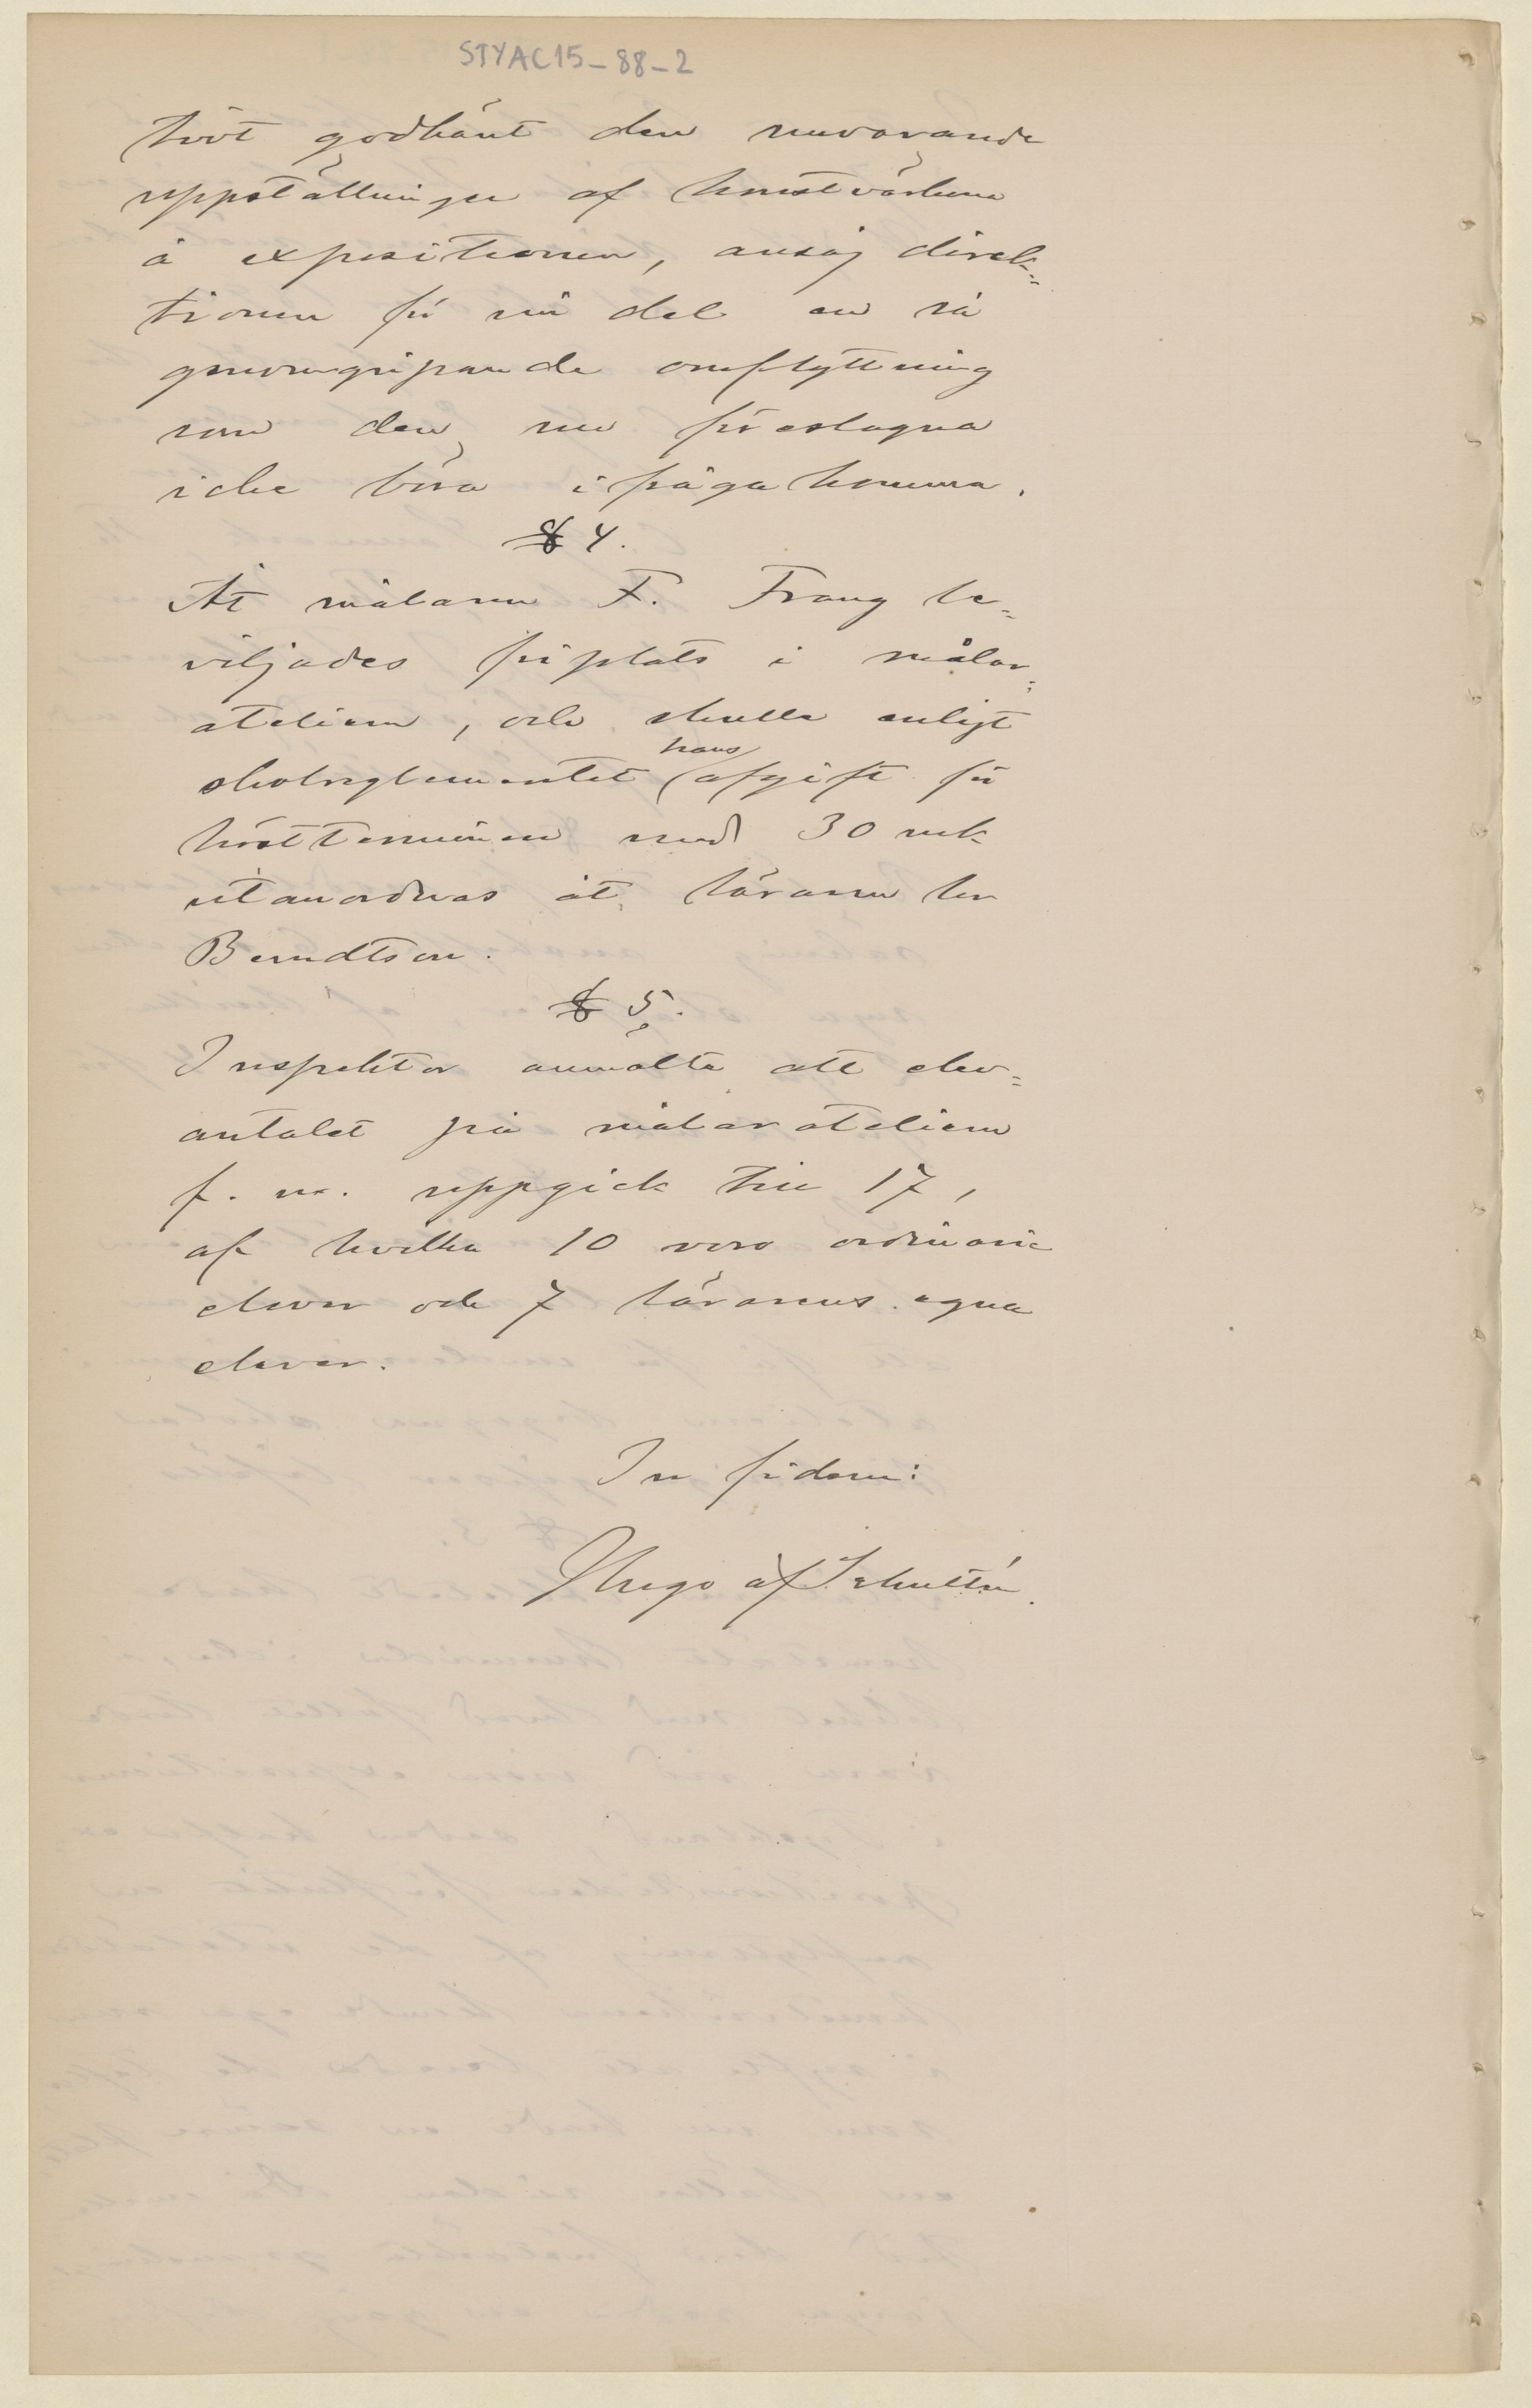 STYAC15-88-2
tivt godkänt den nuvarande
uppställningen af konstvärkena
å expositionen, ansåg direk=
tionen för sin del en så
genomgripande omflyttning
som den nu föreslagna
icke böra ifrågakomma.
§ 4.
Åt målaren F. Frang be=
viljades friplats i målar=
atelieren, och skulle enligt
skolreglementet hans afgift för
hösttterminen med 30 mk
utanordnas åt läraren hr
Berndtson.
§ 5.
Inspektor anmälte att elev=
antalet på målaratelieren
f. n. uppgick till 17,
af hvilka 10 voro ordinarie
elever och 7 lärarens egna
elever.
In fidem:
Hugo af Schultén.